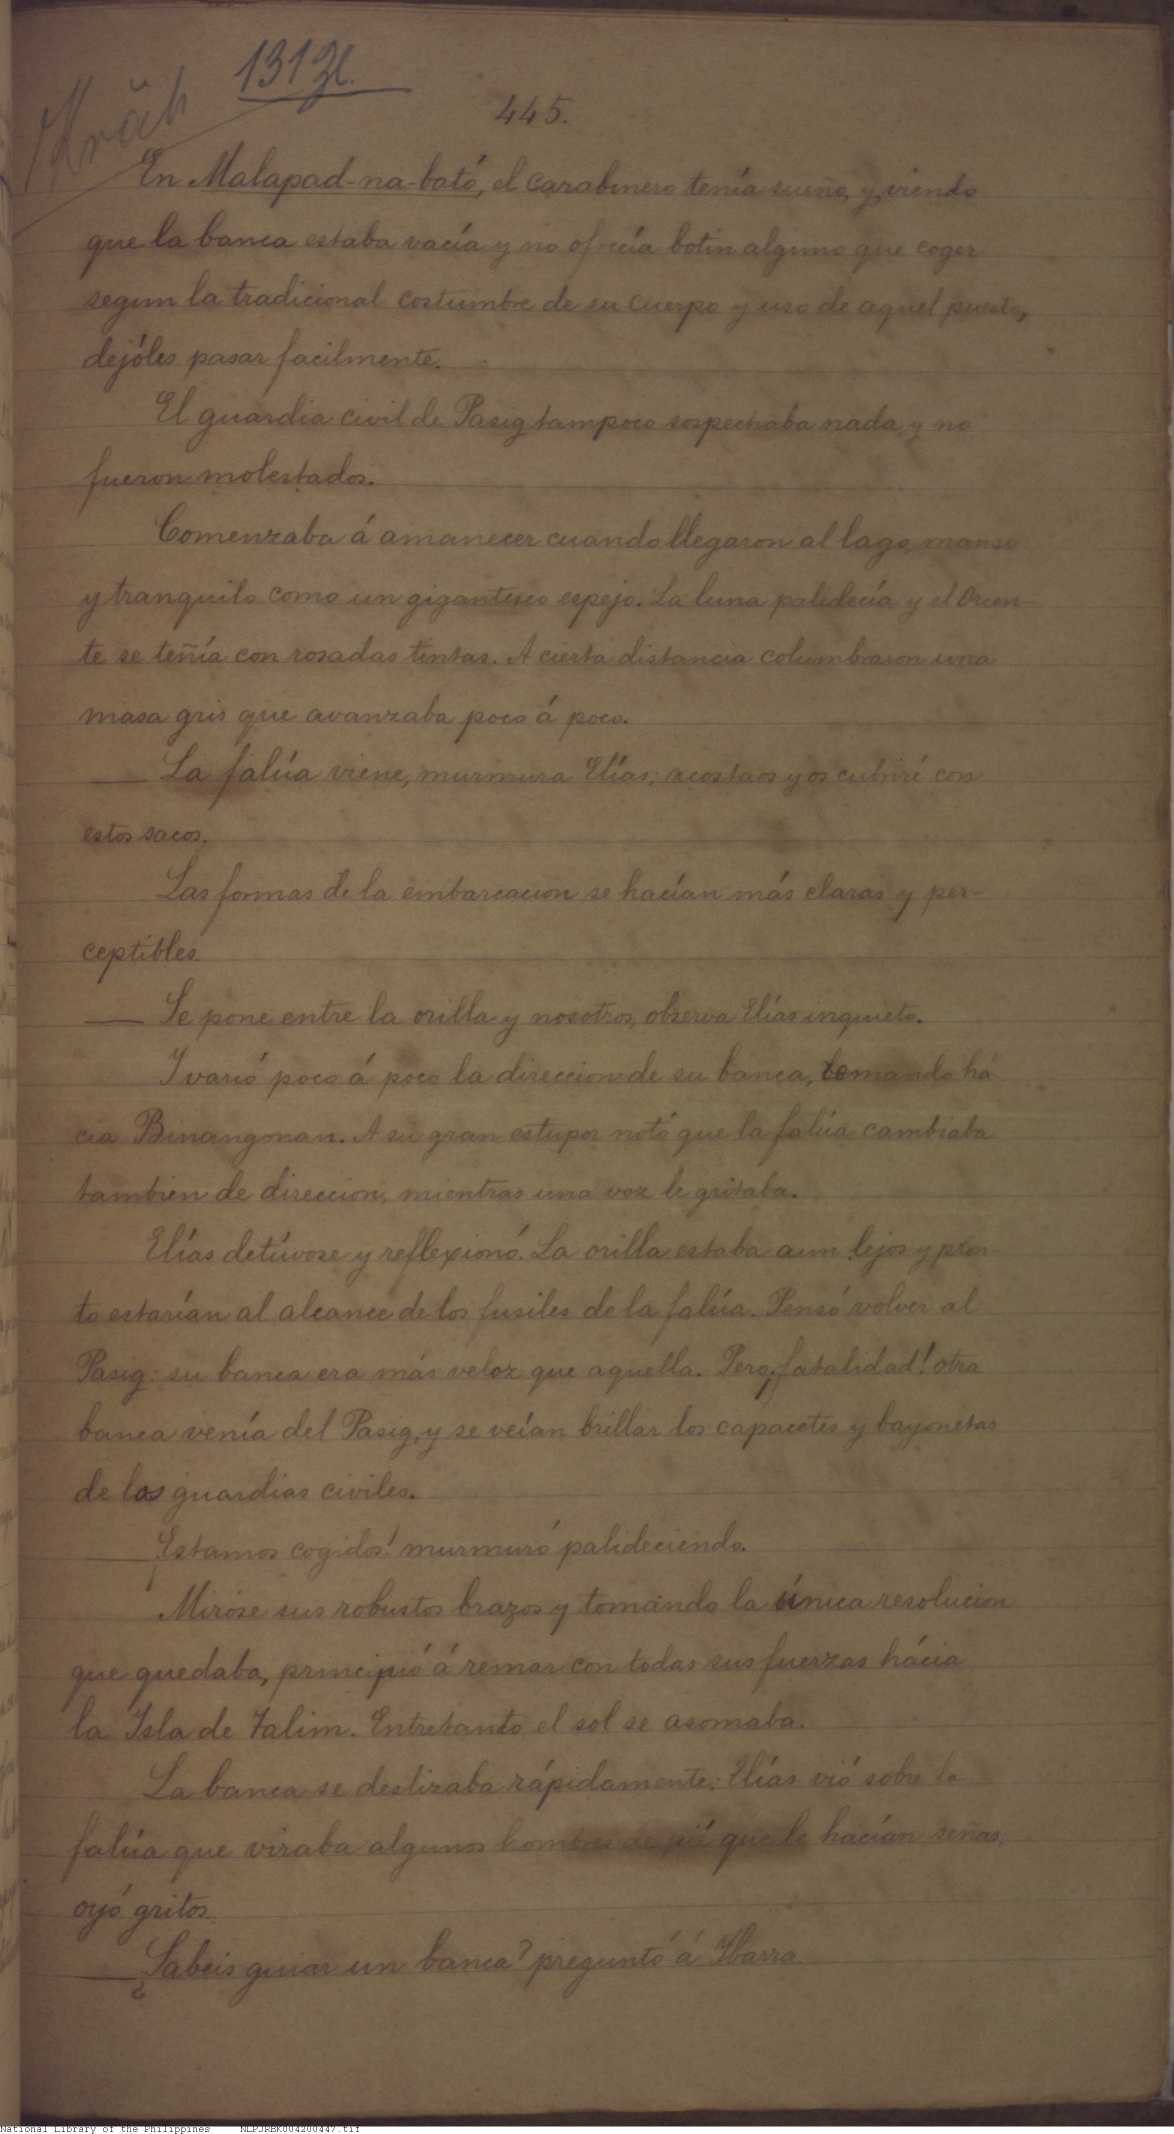 131 Zl.
Kräh
445.
En Malapad-na-bató, el carabinero tenía sueño, y, viendo
que la banca estaba vacía y no ofrecía botin alguno que coger
segun la tradicional costumbre de su cuerpo y uso de aquel puesto,
dejóles pasar facilmente.
El guardia civil de Pasig tampoco sospechaba nada y no
fueron molestados.
Comenzaba á amanecer cuando llegaron al lago, manso
y tranquilo como un gigantesco espejo. La luna palidecía y el Orien-
te se teñía con rosadas tintas. A cierta distancia columbraron una
masa gris que avanzaba poco á poco.
— La falúa viene, murmura Elías; acostaos y os cubriré con
estos sacos.
Las formas de la embarcacion se hacían más claras y per-
ceptibles.
— Se pone entre la orilla y nosotros, observa Elías inquieto.
Y varió poco á poco la direccion de su banca, remando há
cia Binangonan. A su gran estupor notó que la falúa cambiaba
tambien de direccion, mientras una voz le gritaba.
Elías detúvose y reflexionó. La orilla estaba aun lejos y pron
to estarían al alcance de los fusiles de la falúa. Pensó volver al
Pasig: su banca era más veloz que aquella. Pero ¡fatalidad! otra
banca venía del Pasig, y se veían brillar los capacetes y bayonetas
de los guardias civiles.
— ¡Estamos cogidos! murmuró palideciendo.
Miróse sus robustos brazos y tomando la única resolucion
que quedaba, principió á remar con todas sus fuerzas hácia
la Isla de Talim. Entretanto el sol se asomaba.
La banca se deslizaba rápidamente; Elías vió sobre la
falúa que viraba algunos hombres de pié que le hacían señas,
oyó gritos.
— ¿Sabeis guiar un banca? preguntó á Ibarra.
National Library of the Philippines NLPJRBK004200447.tif